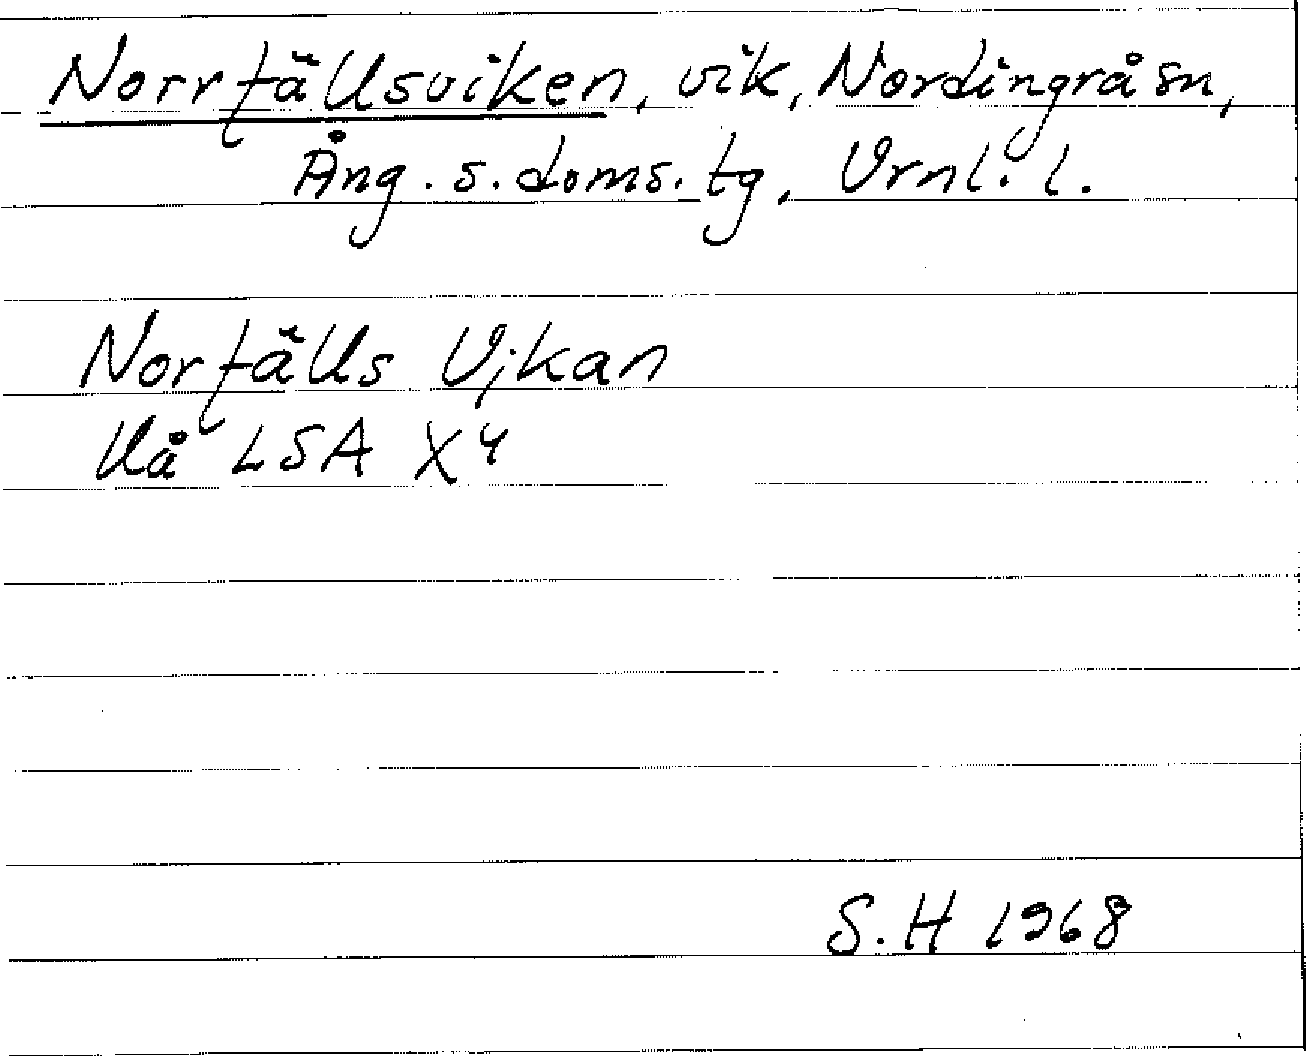 Norrfällsviken, vik, Nordingrå sn,
Ång. s. doms. tg, Vrnl. l.
Norfälls Vikan
Uå LSA X4
S.H 1968